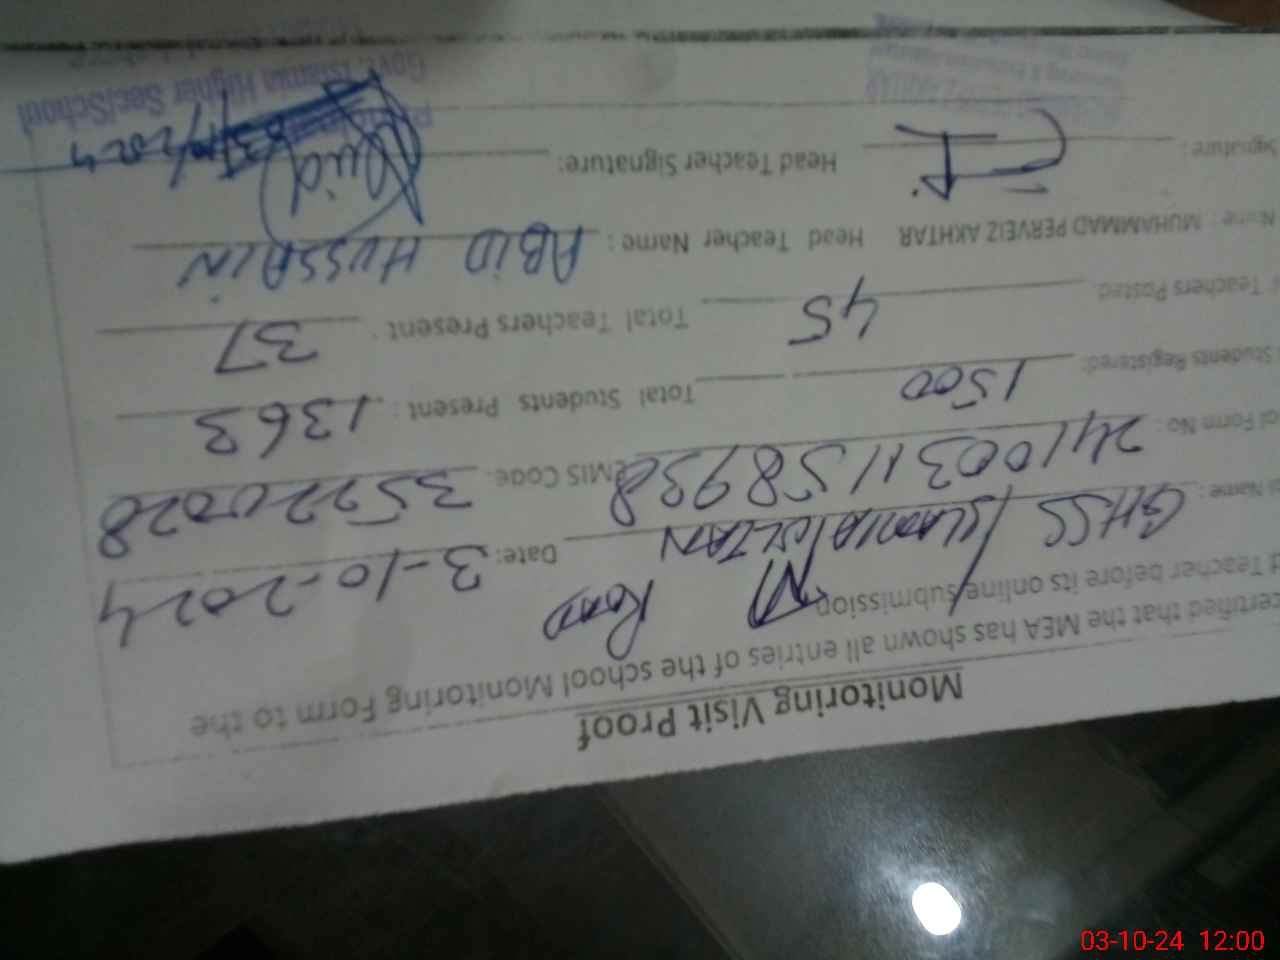 Monitoring Visit Proof
certified that the MEA has shown all entries of the school Monitoring Form to the
Teacher before its online submission
Name: GHSS ISLAMIA MULTAN Road Date: 3-10-2024
Form No: 2410031158938 EMIS Code: 35220028
Students Registered: 1500 Total Students Present: 1363
Teachers Posted: 45 Total Teachers Present: 37
Name: MUHAMMAD PERVEIZ AKHTAR Head Teacher Name: ABID HUSSAIN
Signature: Head Teacher Signature:
Govt. Islamia Higher Sec/School
03-10-24 12:00